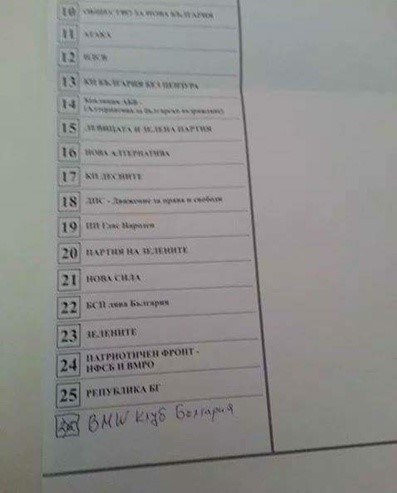 10 ОБЩЕСТВО ЗА НОВА БЪЛГАРИЯ
11 АТАКА
12
13 КП БЪЛГАРИЯ БЕЗ ЦЕНЗУРА
14 Коалиция АБВ -
(Алтернатива за българско възраждане)
15 ЛЕВИЦАТА И ЗЕЛЕНА ПАРТИЯ
16 НОВА АЛТЕРНАТИВА
17 КП ДЕСНИТЕ
18 ДПС - Движение за права и свободи
19 ПП Глас Народен
20 ПАРТИЯ НА ЗЕЛЕНИТЕ
21 НОВА СИЛА
22 БСП лява България
23 ЗЕЛЕНИТЕ
24 ПАТРИОТИЧЕН ФРОНТ -
НФСБ И ВМРО
25 РЕПУБЛИКА БГ
26 BMW Клуб Болгария